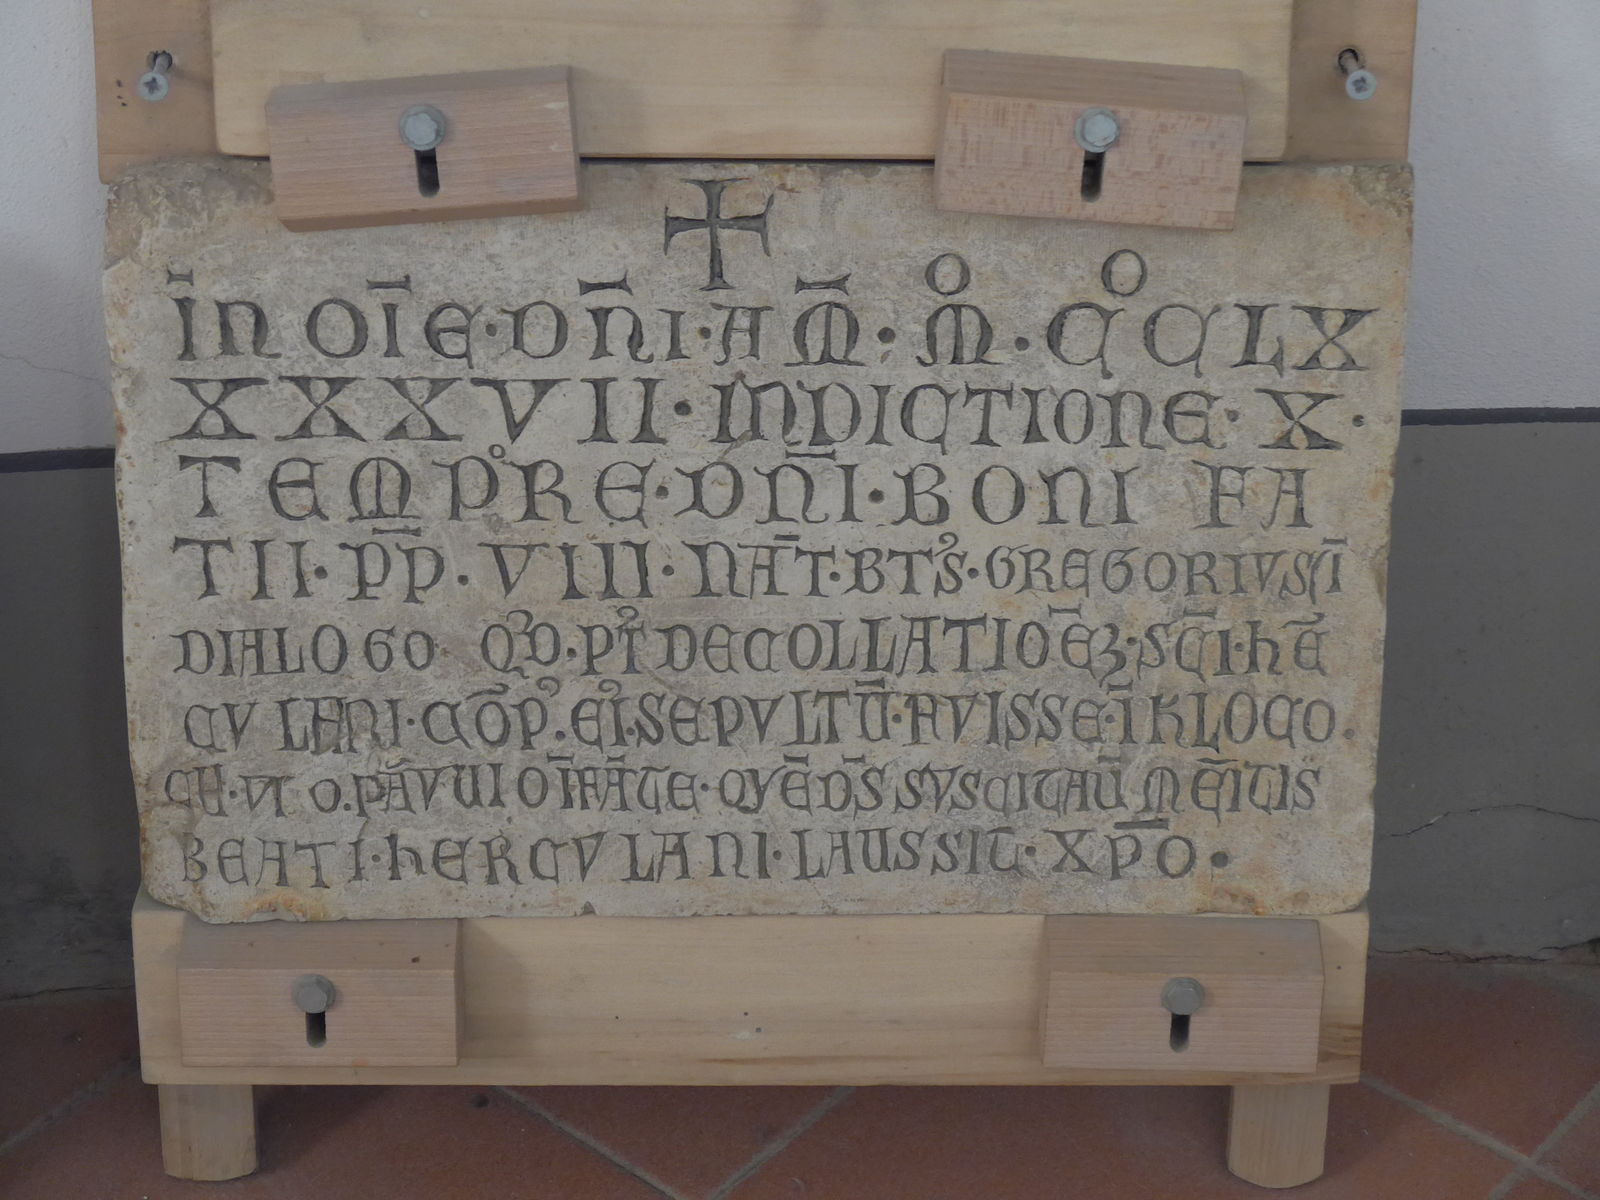 +
IN OĪE · DÑI · A M̃ · M̊ · CC̊LX
XXXVII · INDICTIONE · X ·
TEMPᵒRE · DÑI · BONI FA
TII · P̄P · VIII · NAT̄ · BT̓S · GREGORIVS Ī
DIALOGO QD̓ · PT̓ DECOLLATIOĒꝫ · SC̄I · HĒ
CVLANI · CŌP̓ · EI̓ · SEPVLTŪ · AVISSE · Ī KLOCO ·
VI O · PAVUI OĪFĀTE · QVĒ DS̄ SVSCITAŪ MĒITIS
BEATI · HERCVLANI · LAUS SIT · XP̄O ·